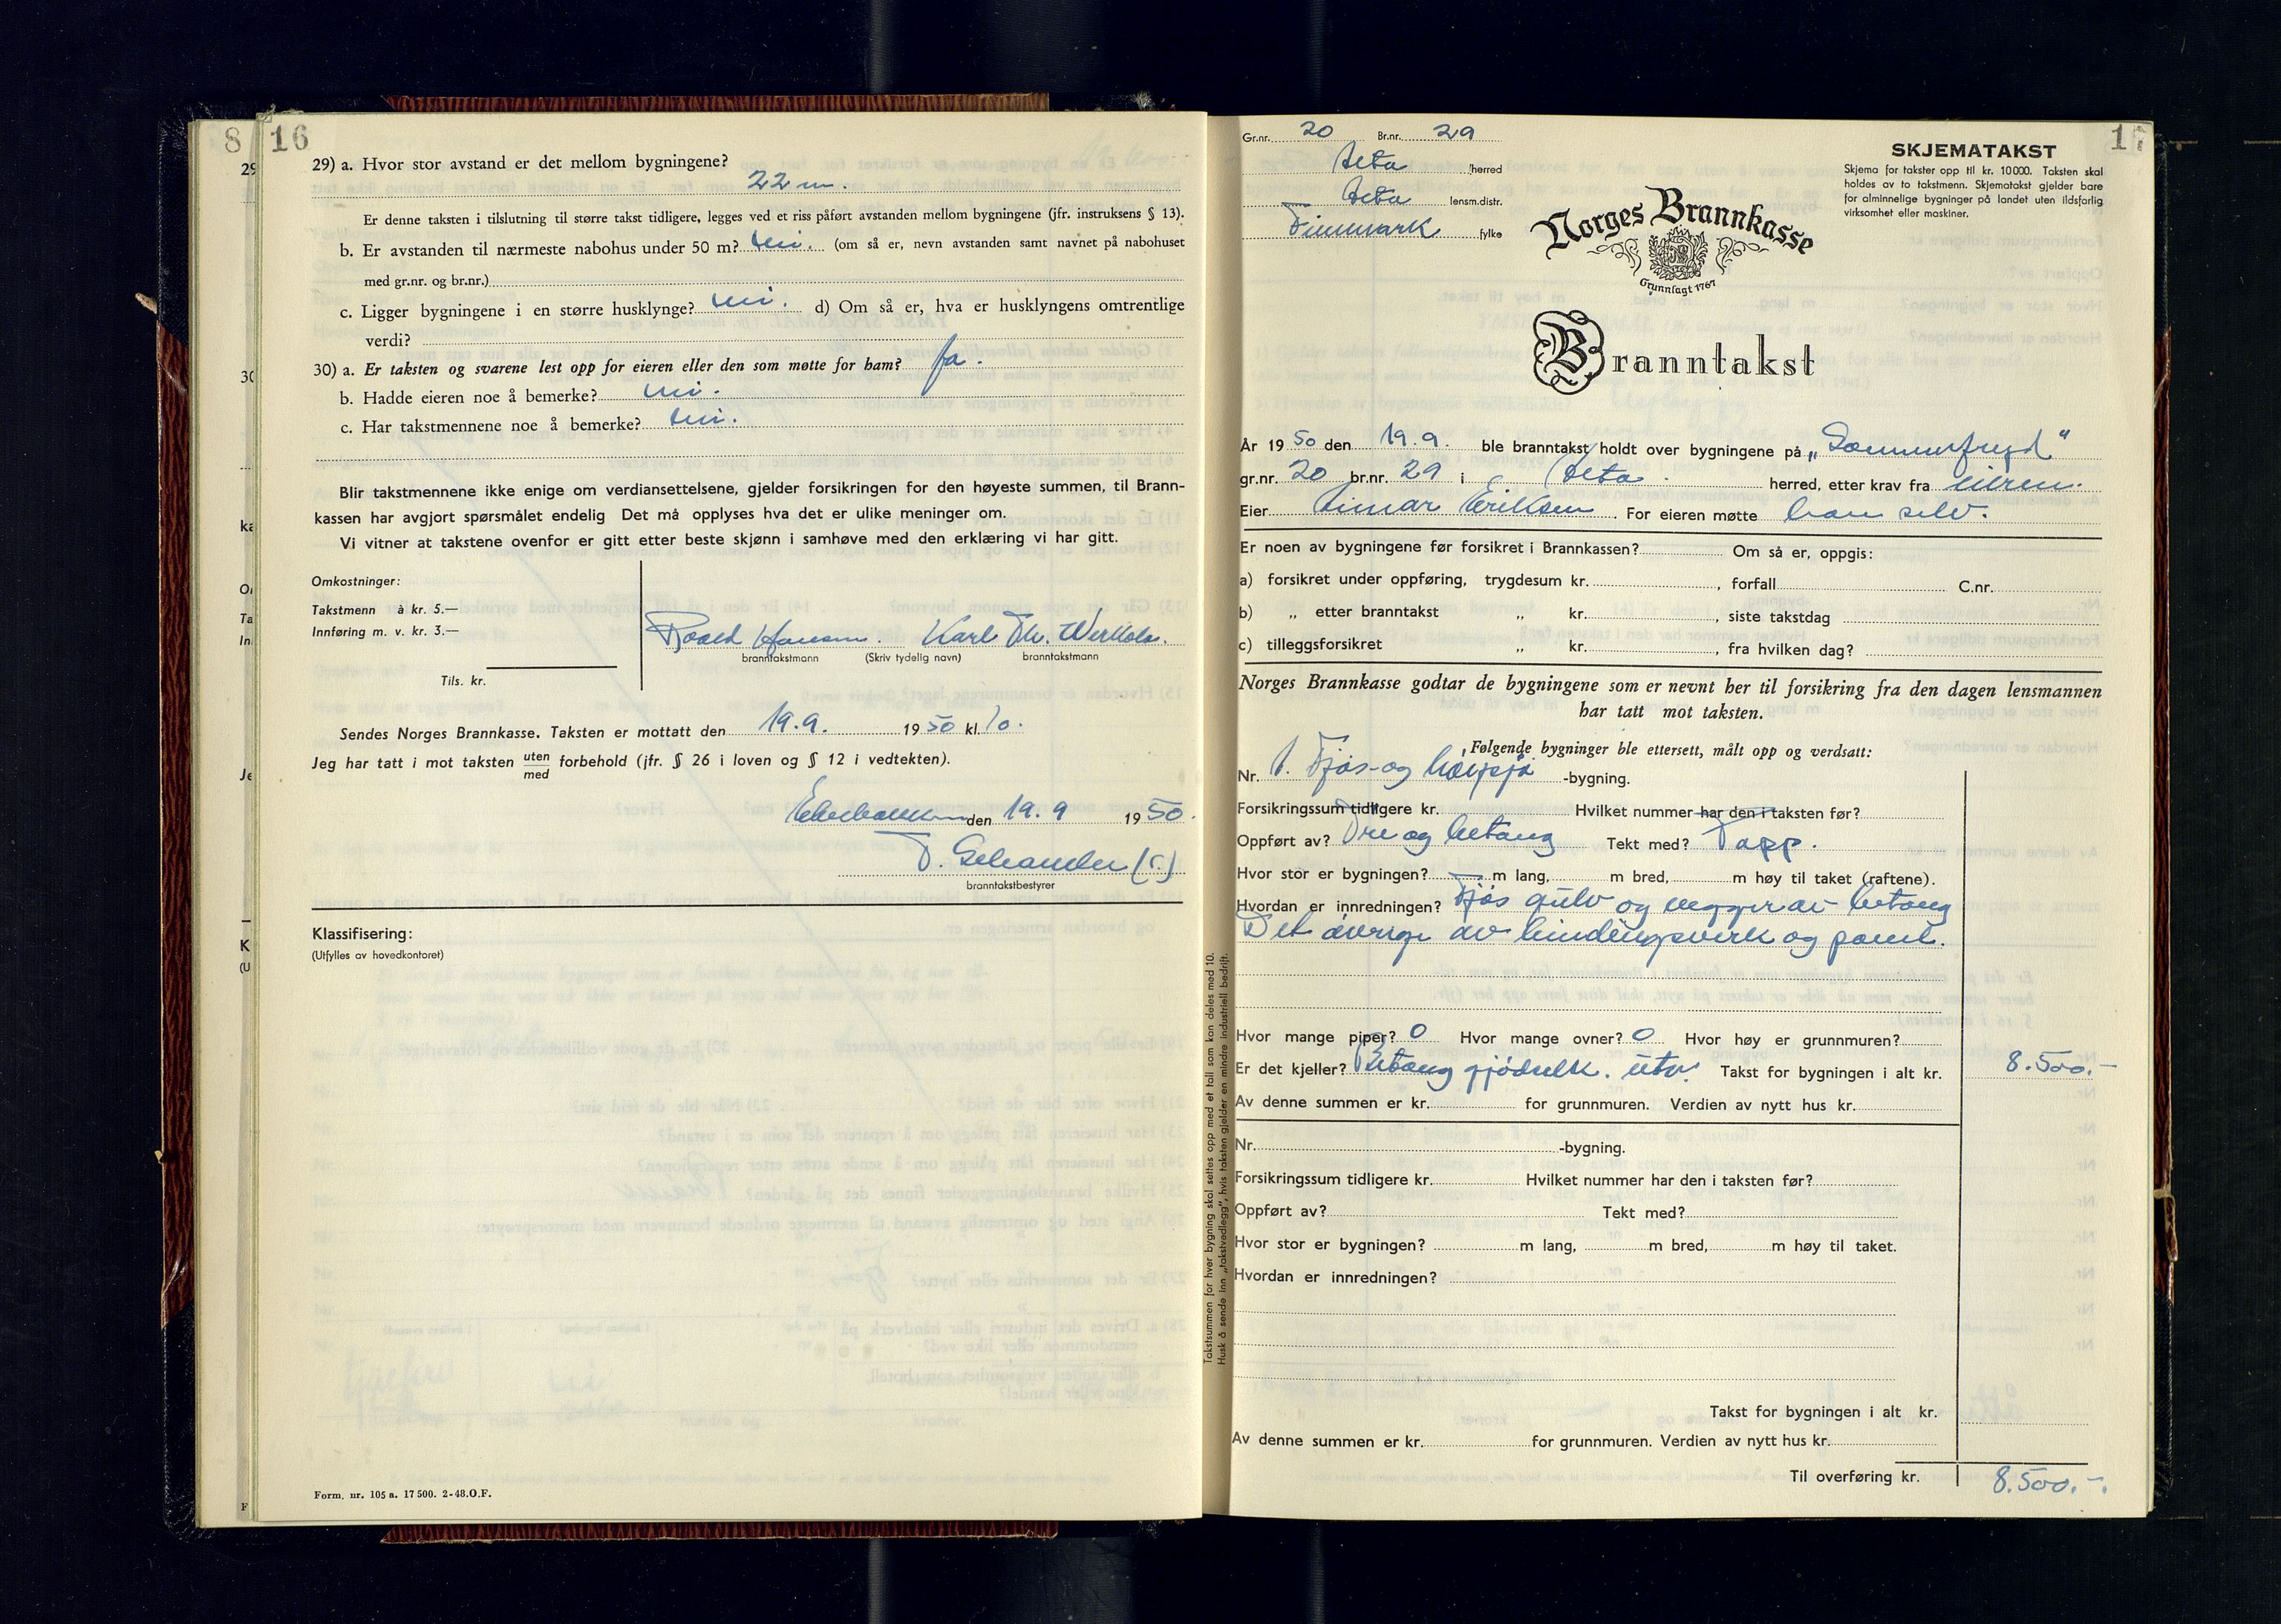 8 16
29) a. Hvor stor avstand er det mellom bygningene?
22 m.
Er denne taksten i tilslutning til større takst tidligere, legges ved et riss påført avstanden mellom bygningene (jfr. instruksens § 13).
b. Er avstanden til nærmeste nabohus under 50 m? nei. (om så er, nevn avstanden samt navnet på nabohuset
med gr.nr. og br.nr.)
c. Ligger bygningene i en større husklynge? nei. d) Om så er, hva er husklyngens omtrentlige
verdi?
30) a. Er taksten og svarene lest opp for eieren eller den som møtte for ham? ja.
b. Hadde eieren noe å bemerke? nei.
c. Har takstmennene noe å bemerke? nei.
Blir takstmennene ikke enige om verdiansettelsene, gjelder forsikringen for den høyeste summen, til Brann-
kassen har avgjort spørsmålet endelig Det må opplyses hva det er ulike meninger om.
Vi vitner at takstene ovenfor er gitt etter beste skjønn i samhøve med den erklæring vi har gitt.
Omkostninger:
Takstmenn à kr. 5.—
Innføring m. v. kr. 3.—
Hansen. Karl
branntakstmann (Skriv tydelig navn) branntakstmann
Tils. kr.
Sendes Norges Brannkasse. Taksten er mottatt den 19.9. 1950 kl. 10.
Jeg har tatt i mot taksten uten/med forbehold (jfr. § 26 i loven og § 12 i vedtekten).
den 19.9 1950.
branntakstbestyrer
Klassifisering:
(Utfylles av hovedkontoret)
Form. nr. 105 a. 17 500. 2-48.O.F.
17
Gr.nr. 20 Br.nr. 29
Alta herred
Alta lensm.distr.
Finnmark fylke
SKJEMATAKST
Skjema for takster opp til kr. 10 000. Taksten skal
holdes av to takstmenn. Skjematakst gjelder bare
for alminnelige bygninger på landet uten ildsfarlig
virksomhet eller maskiner.
Norges Brannkasse
Grunnlagt 1767
Branntakst
År 1950 den 19.9. ble branntakst holdt over bygningene på „Sommerfryd“
gr.nr. 20 br.nr. 29 i Alta. herred, etter krav fra eieren.
Eier Einar Eriksen. For eieren møtte han selv.
Er noen av bygningene før forsikret i Brannkassen? Om så er, oppgis:
a) forsikret under oppføring, trygdesum kr. , forfall C.nr.
b) „ etter branntakst „ kr. , siste takstdag
c) tilleggsforsikret „ kr. , fra hvilken dag?
Norges Brannkasse godtar de bygningene som er nevnt her til forsikring fra den dagen lensmannen
har tatt mot taksten.
Følgende bygninger ble ettersett, målt opp og verdsatt:
Nr. 1. Fjøs- og høysjå -bygning.
Forsikringssum tidligere kr. Hvilket nummer har den i taksten før?
Oppført av? Tre og betong Tekt med? Papp.
Hvor stor er bygningen? m lang, m bred, m høy til taket (raftene).
Hvordan er innredningen? Fjøs gulv og vegger av betong
Det øvrige av bindingsverk og panel.
Hvor mange piper? 0 Hvor mange ovner? 0 Hvor høy er grunnmuren?
Er det kjeller? Betong gjødselk. utv. Takst for bygningen i alt kr. 8.500.-
Av denne summen er kr. for grunnmuren. Verdien av nytt hus kr.
Nr. -bygning.
Forsikringssum tidligere kr. Hvilket nummer har den i taksten før?
Oppført av? Tekt med?
Hvor stor er bygningen? m lang, m bred, m høy til taket.
Hvordan er innredningen?
Takst for bygningen i alt kr.
Av denne summen er kr. for grunnmuren. Verdien av nytt hus kr.
Til overføring kr. 8.500.-.
Takstsummen for hver bygning skal settes opp med et tall som kan deles med 10.
Husk å sende inn „takstvedlegg“, hvis taksten gjelder en mindre industriell bedrift.